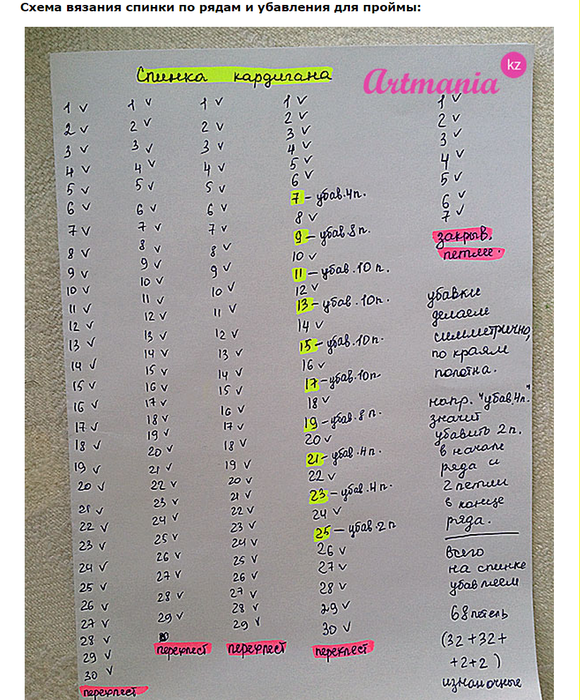 Схема вязания спинки по рядам и убавления для проймы:
Artmania kz
Спинка кардигана
1 v
2 v
3 v
4 v
5 v
6 v
7 v
8 v
9 v
10 v
11 v
12 v
13 v
14 v
15 v
16 v
17 v
18 v
19 v
20 v
21 v
22 v
23 v
24 v
25 v
26 v
27 v
28 v
29 v
30 v
перехлест
1 v
2 v
3 v
4 v
5 v
6 v
7 v
8 v
9 v
10 v
11 v
12 v
13 v
14 v
15 v
16 v
17 v
18 v
19 v
20 v
21 v
22 v
23 v
24 v
25 v
26 v
27 v
28 v
29 v
перехлест
1 v
2 v
3 v
4 v
5 v
6 v
7 v
8 v
9 v
10 v
11 v
12 v
13 v
14 v
15 v
16 v
17 v
18 v
19 v
20 v
21 v
22 v
23 v
24 v
25 v
26 v
27 v
28 v
29 v
перехлест
1 v
2 v
3 v
4 v
5 v
6 v
7 – убав. 4 п.
8 v
9 – убав. 8 п.
10 v
11 – убав. 10 п.
12 v
13 – убав. 10 п.
14 v
15 – убав. 10 п.
16 v
17 – убав. 10 п.
18 v
19 – убав. 8 п.
20 v
21 – убав. 4 п.
22 v
23 – убав. 4 п.
24 v
25 – убав. 2 п
26 v
27 v
28 v
29 v
30 v
перехлест
1 v
2 v
3 v
4 v
5 v
6 v
7 v
закрыв.
петлее.
убавки
делаем
симметрично,
по краям
полотна.
напр. "убав. 4 п."
значит
убавить 2 п.
в начале
ряда и
2 петли
в конце
ряда.
Всего
на спинке
убавляем
68 петель
(32+32+
+2+2)
изнаночные